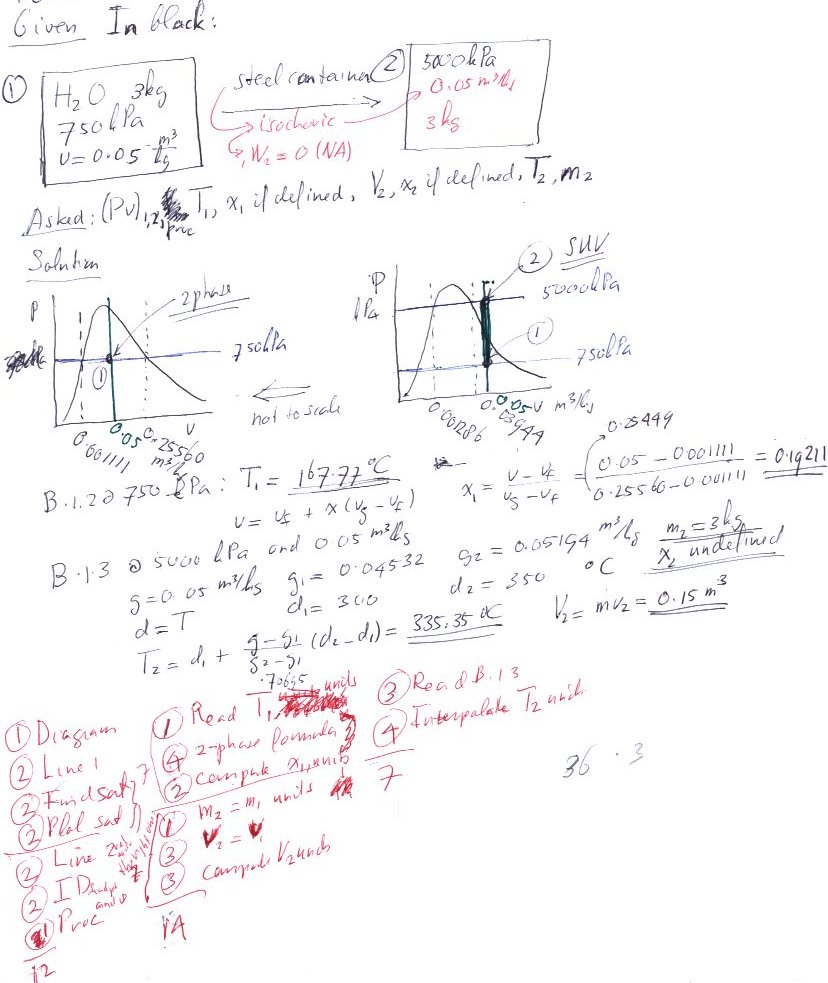 Given In black:
① H₂O 3kg
750kPa
v = 0.05 m³/kg
steel container
isochoric
₁W₂ = 0 (NA)
② 5000kPa
0.05 m³/kg
3kg
Asked: (Pv)₁,₂, proc T₁, x₁ if defined, V₂, x₂ if defined, T₂, m₂
Solution
P
2 phase
750kPa
①
v
0.001111
0.05
0.25560
m³/kg
not to scale
P
kPa
② SUV
5000kPa
①
750kPa
0.001286
0.03944
0.05
v m³/kg
B.1.2 @ 750 kPa: T₁ = 167.77 °C
v = vf + x(vg - vf)
x₁ = (v - vf)/(vg - vf) = (0.05 - 0.001111)/(0.25560 - 0.001111) = 0.19211
0.25449
B.1.3 @ 5000 kPa and 0.05 m³/kg
g = 0.05 m³/kg g₁ = 0.04532 g₂ = 0.05194 m³/kg m₂ = 3kg
d = T d₁ = 300 d₂ = 350 °C x₂ undefined
T₂ = d₁ + (g - g₁)/(g₂ - g₁) (d₂ - d₁) = 335.35 °C V₂ = mv₂ = 0.15 m³
.70695
① Diagram
② Line 1
② Find sat
② Plot sat
7
② Line 2
② ID
① Proc
12
① Read T₁, units
④ 2-phase formula
② compute x₁, units
7
① m₂ = m₁ units
③ v₂ = v₁
③ compute V₂ units
7
14
③ Read B.1.3
④ Interpolate T₂ units
7
36.3